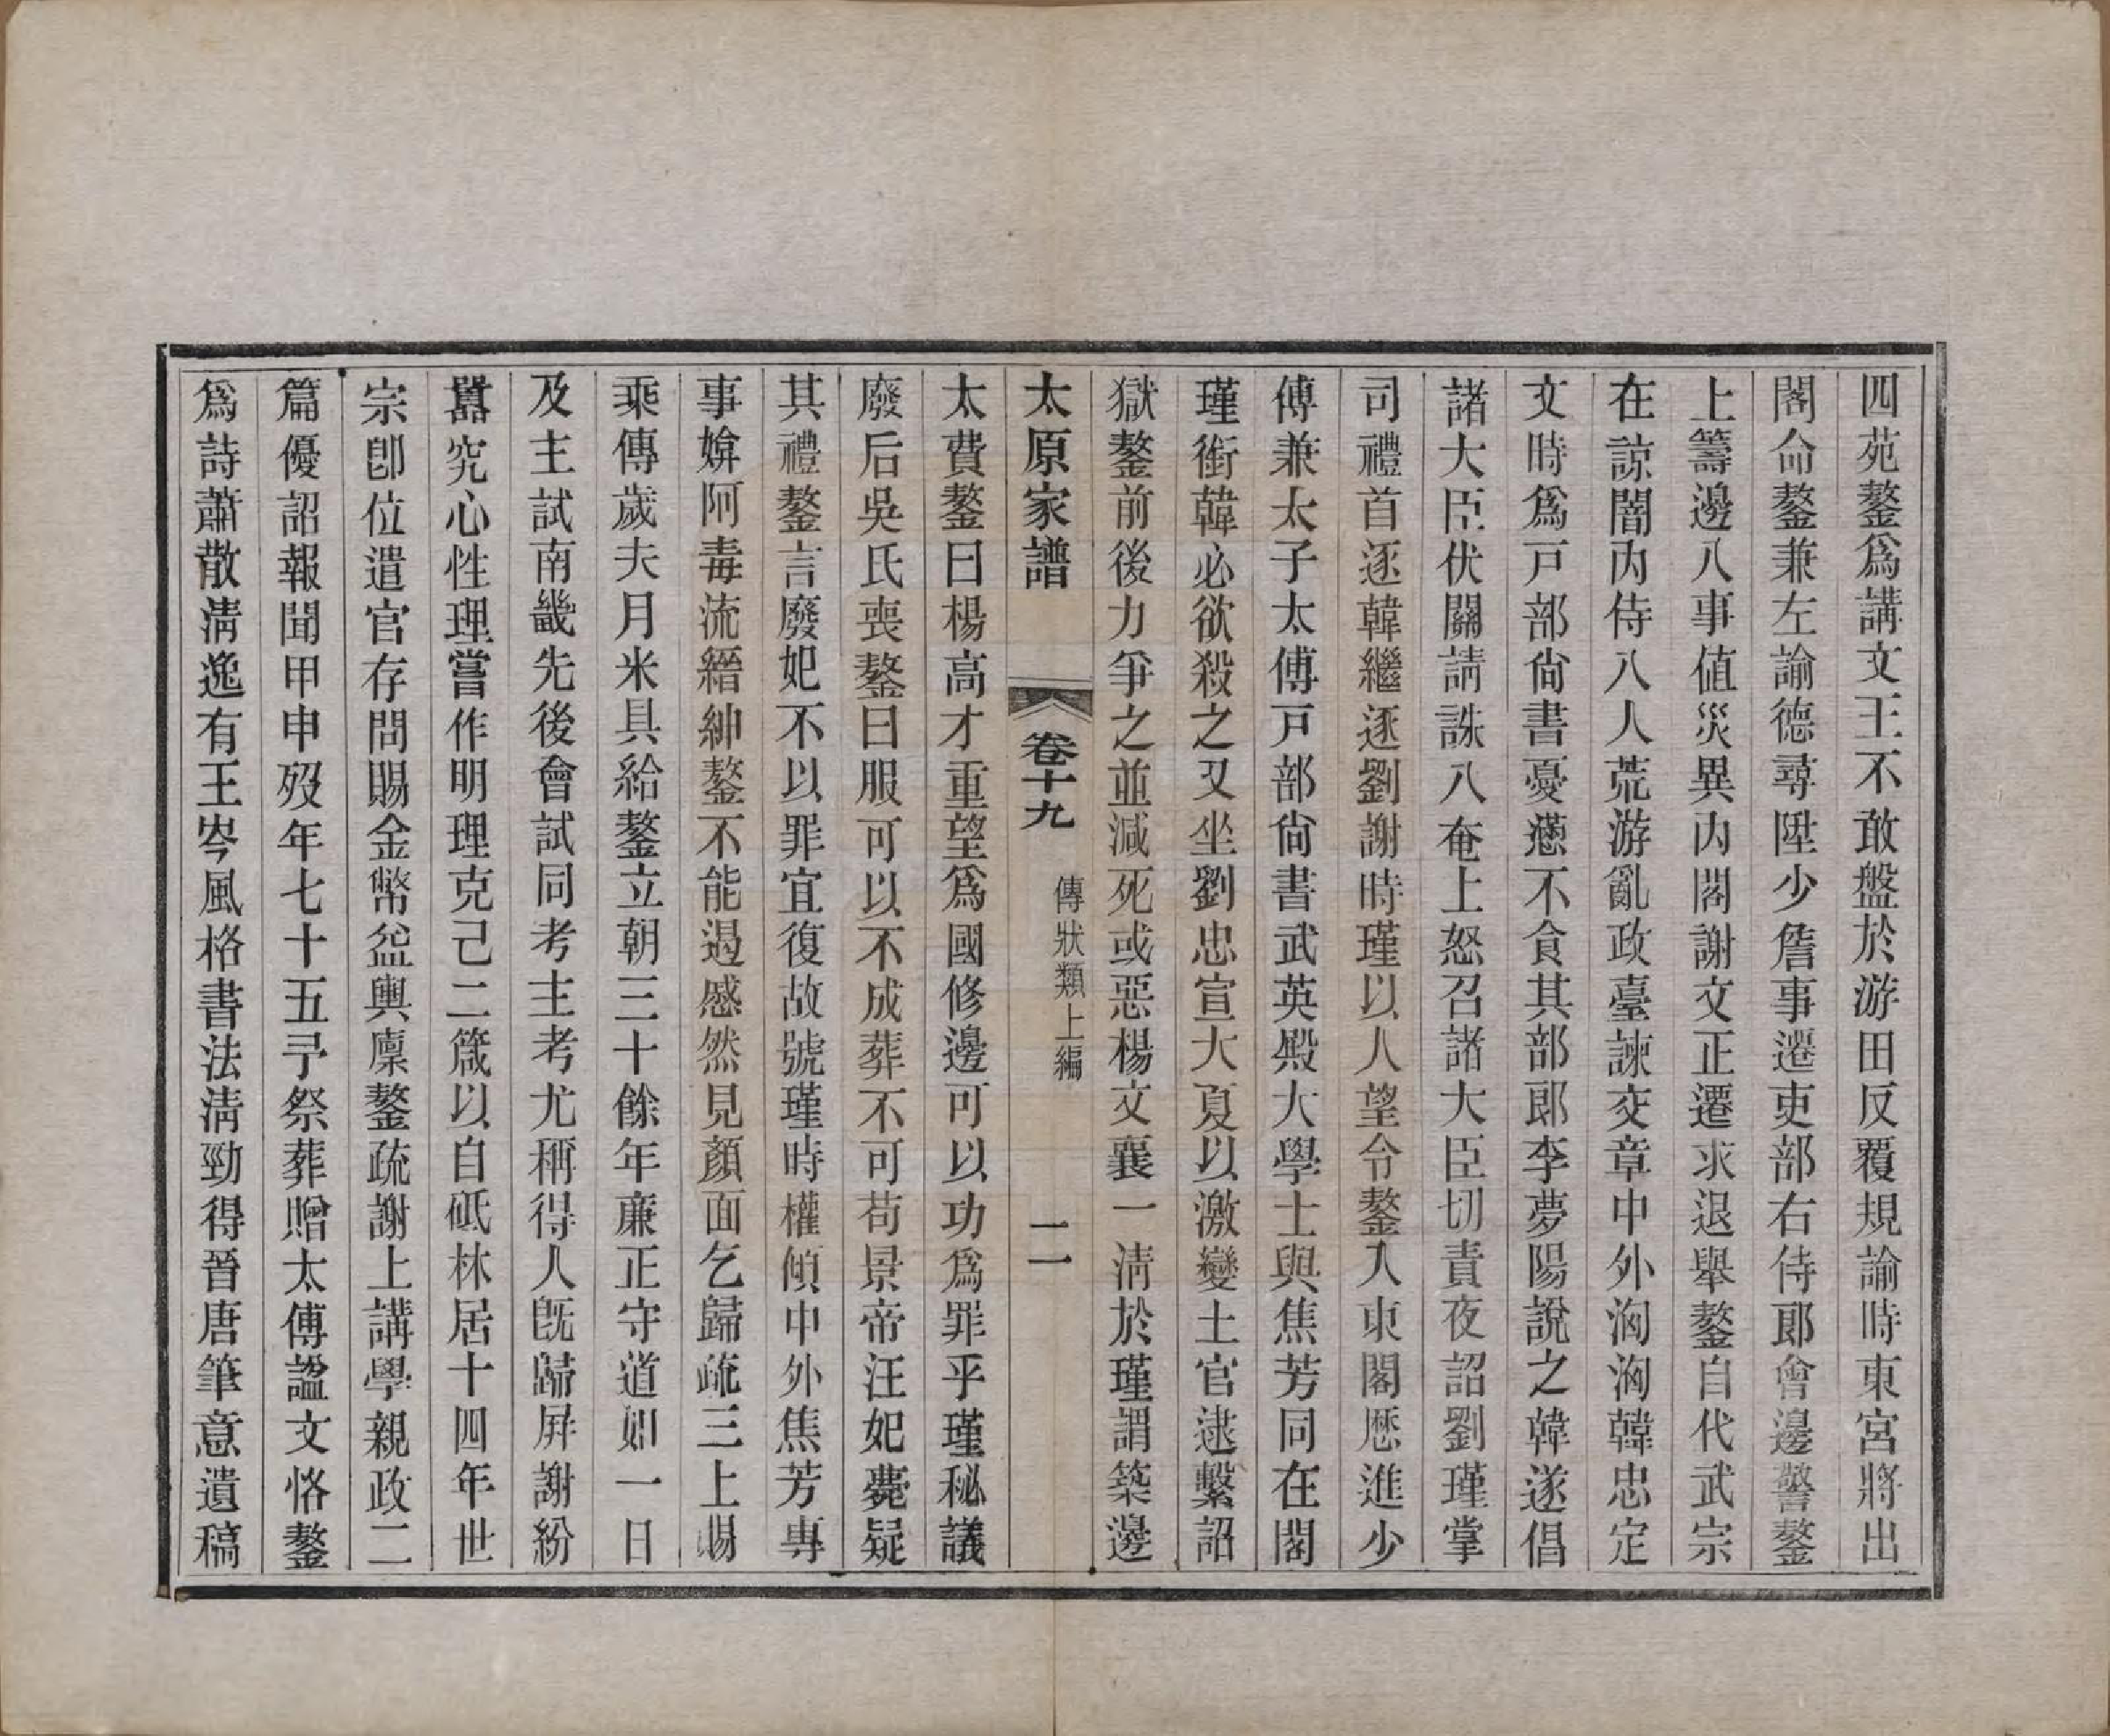 四苑鏊爲講文王不敢盤於游田反覆規諭時東宮將出
閣命鏊兼左諭德尋陞少詹事遷吏部右侍郎會邊警鏊
上籌邊八事值災異內閣謝文正遷求退舉鏊自代武宗
在諒闇內侍八人荒游亂政臺諫交章中外洶洶韓忠定
文時爲戸部尙書憂懣不食其部郎李夢陽說之韓遂倡
諸大臣伏闕請誅八奄上怒召諸大臣切責夜詔劉瑾掌
司禮首逐韓繼逐劉謝時瑾以人望令鏊入東閣厯進少
傅兼太子太傅戸部尙書武英殿大學士與焦芳同在閣
瑾銜韓必欲殺之又坐劉忠宣大夏以激變土官逮繫詔
獄鏊前後力爭之並減死或惡楊文襄一淸於瑾謂築邊
太原家譜 卷十九 傳狀類上編 二一
太費鏊曰楊高才重望爲國修邊可以功爲罪乎瑾秘議
廢后吳氏喪鏊曰服可以不成葬不可苟景帝汪妃薨疑
其禮鏊言廢妃不以罪宜復故號瑾時權傾中外焦芳專
事媕阿毒流縉紳鏊不能遏慼然見顏面乞歸疏三上賜
乘傳歲夫月米具給鏊立朝三十餘年廉正守道如一日
及主試南畿先後會試同考主考尤稱得人旣歸屛謝紛
囂究心性理嘗作明理克己二箴以自砥林居十四年世
宗卽位遣官存問賜金幣益輿廩鏊疏謝上講學親政二
篇優詔報聞甲申歿年七十五予祭葬贈太傅諡文恪鏊
爲詩蕭散淸逸有王岑風格書法淸勁得晉唐筆意遺稿